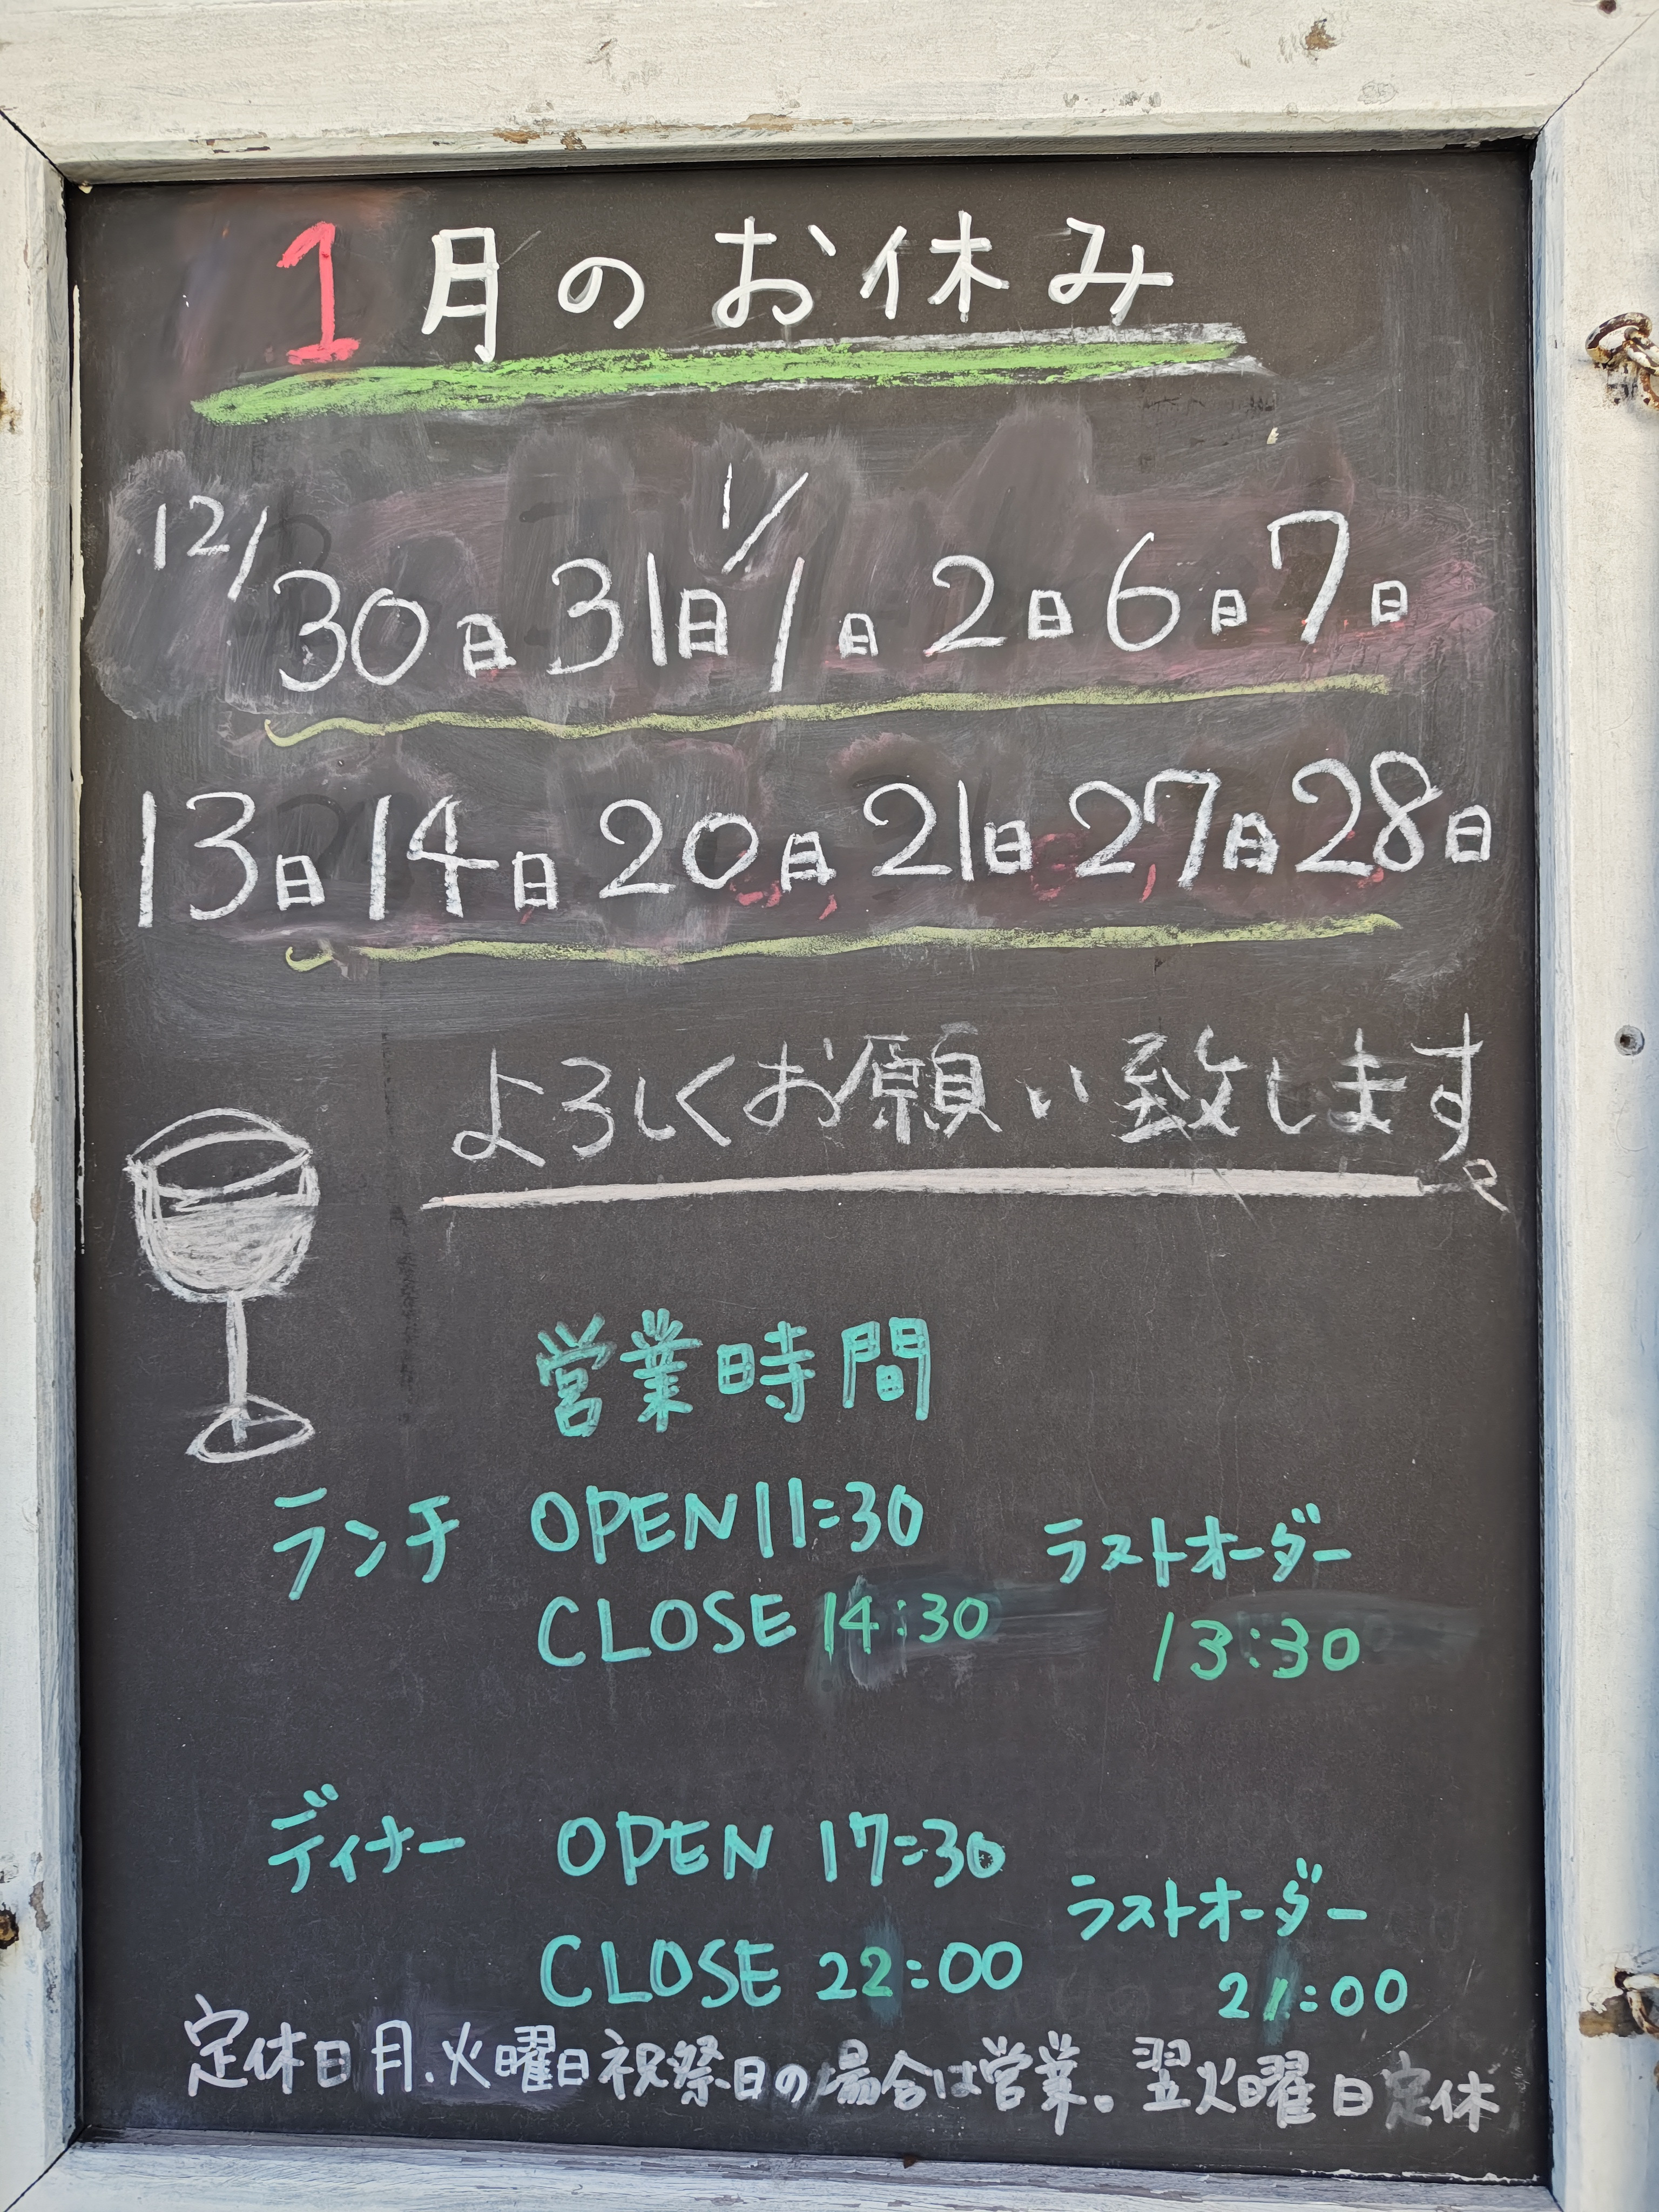 1月のお休み
12/30日 31日 1/1日 2日 6日 7日
13日 14日 20日 21日 27日 28日
よろしくお願い致します。
営業時間
ランチ OPEN 11:30 ラストオーダー
CLOSE 14:30 13:30
ディナー OPEN 17:30
ラストオーダー
CLOSE 22:00 21:00
定休日月.火曜日祝祭日の場合は営業。翌火曜日定休